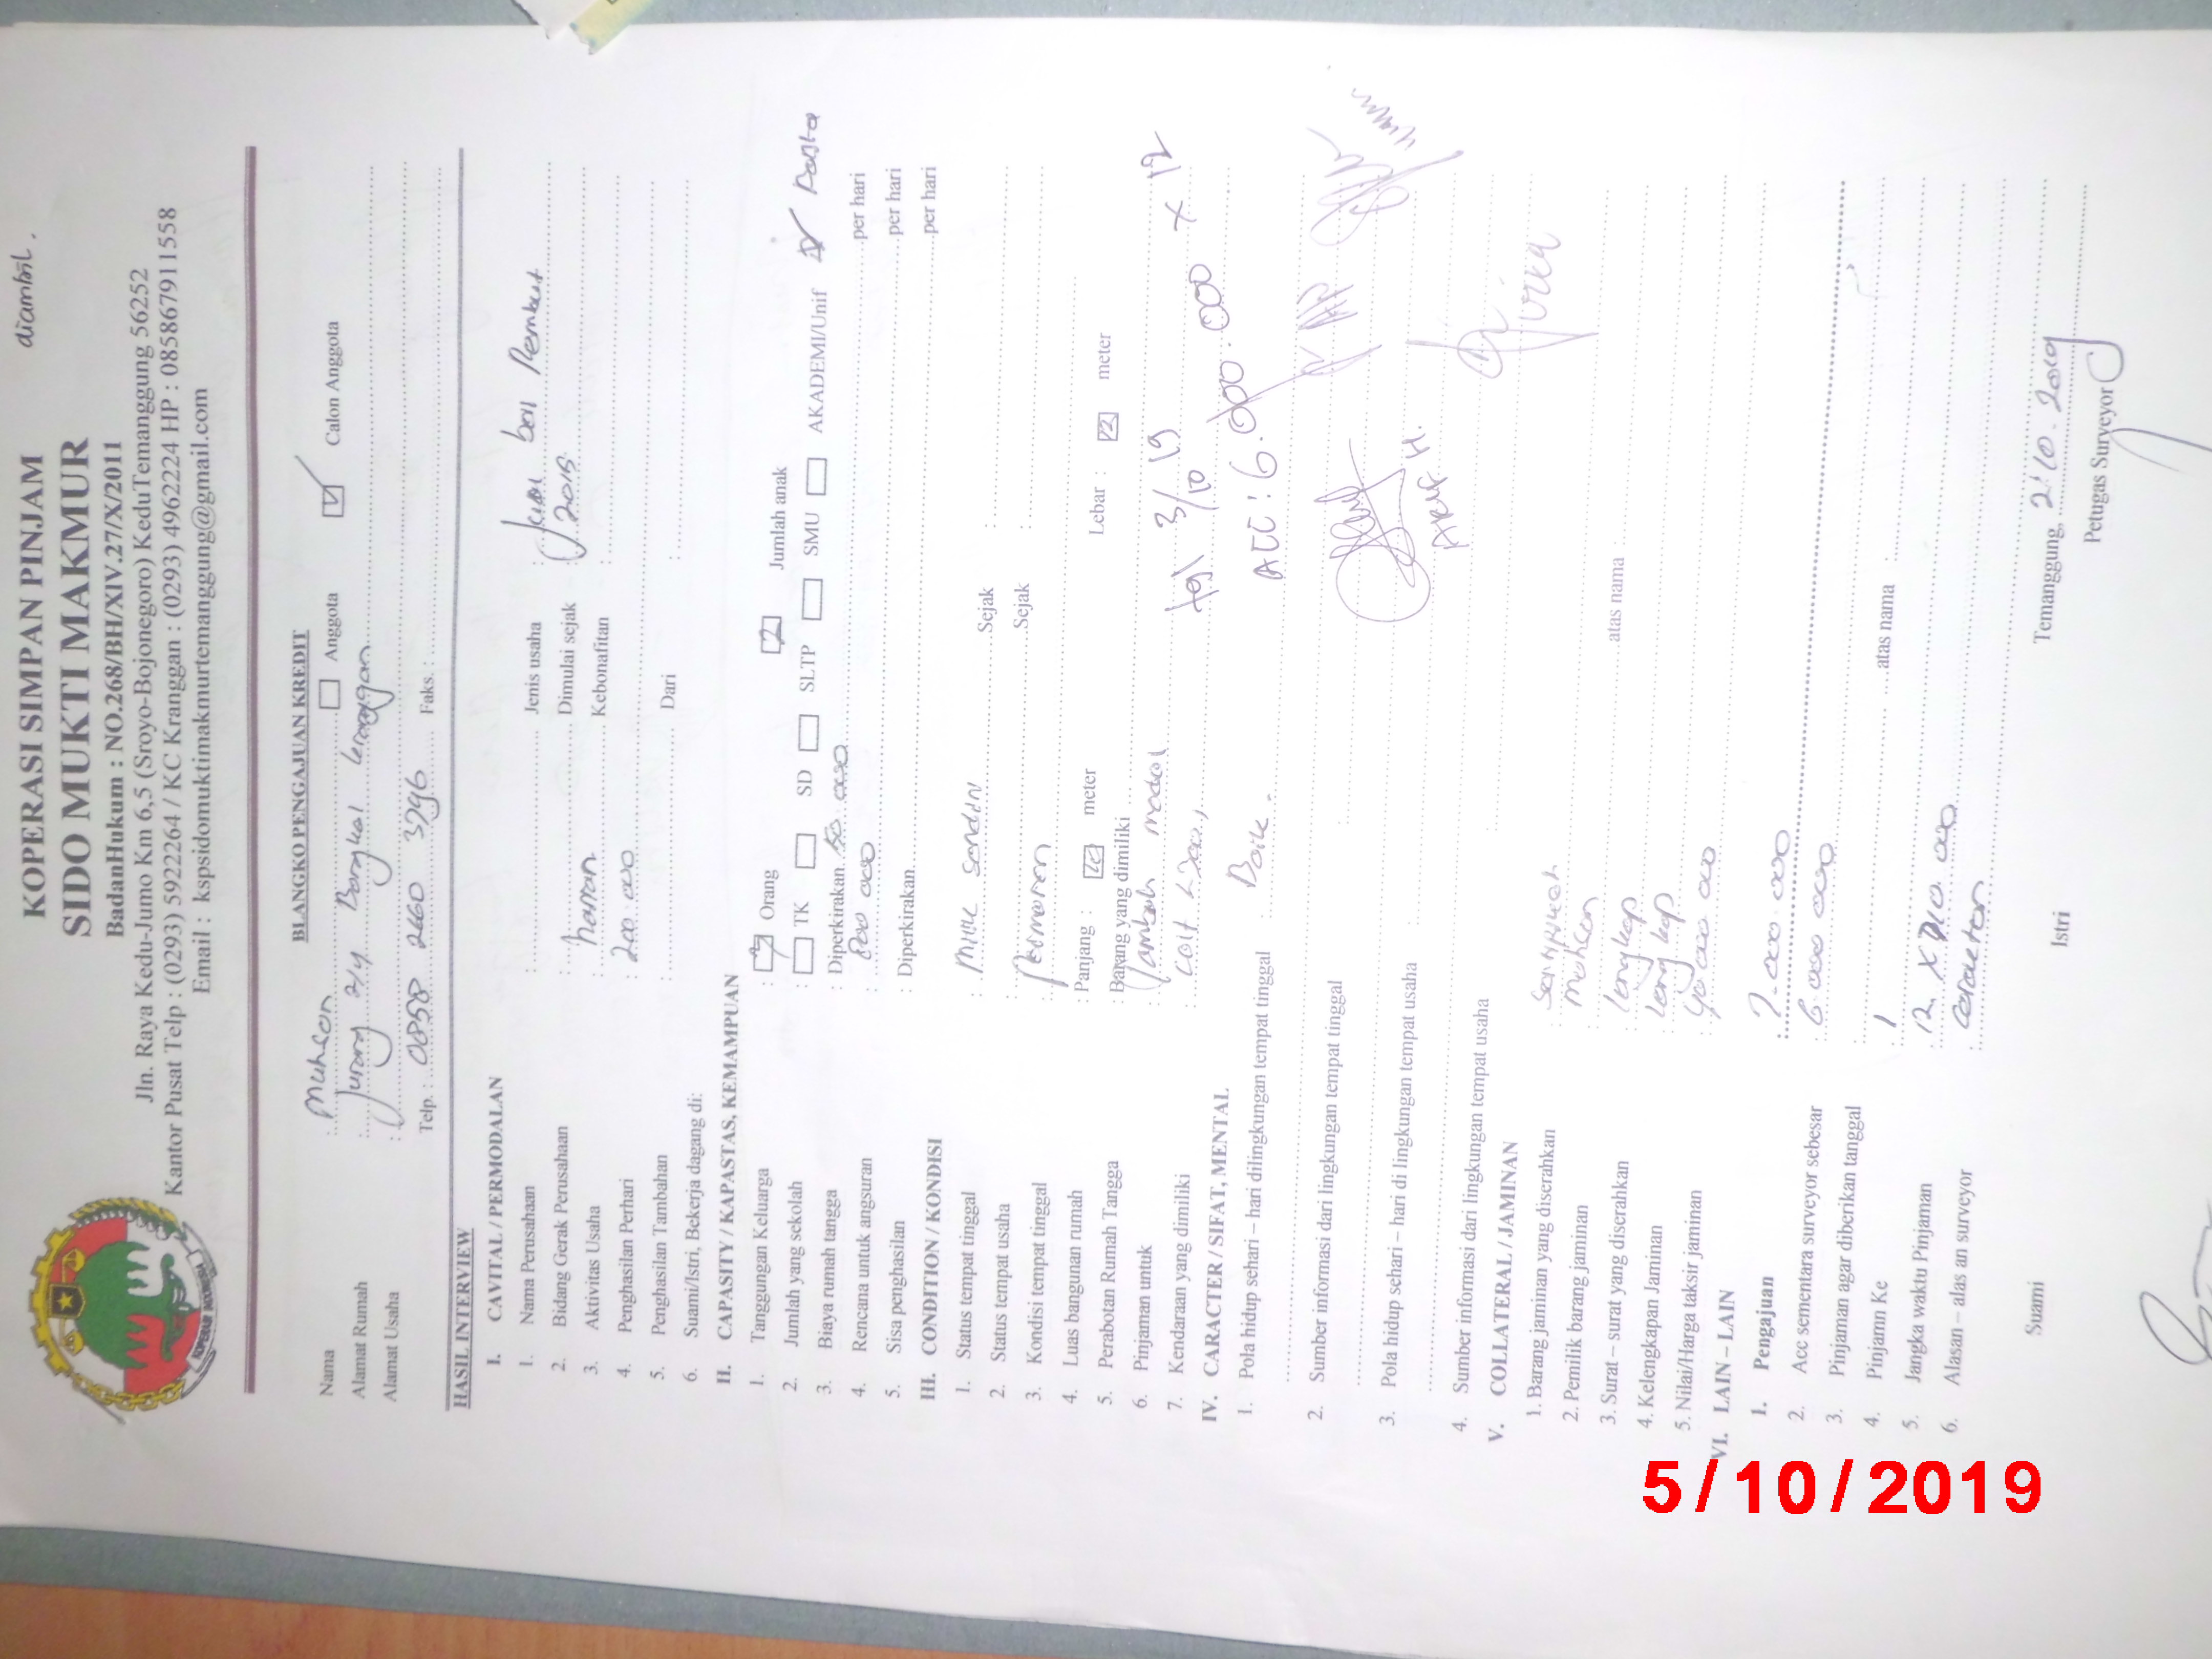 diambil.
KOPERASI SIMPAN PINJAM
SIDO MUKTI MAKMUR
BadanHukum : NO.268/BH/XIV.27/X/2011
Jln. Raya Kedu-Jumo Km 6,5 (Sroyo-Bojonegoro) KeduTemanggung 56252
Kantor Pusat Telp : (0293) 5922264 / KC Kranggan : (0293) 4962224 HP : 085867911558
Email : kspsidomuktimakmurtemanggung@gmail.com
KOPERASI INDONESIA
BLANGKO PENGAJUAN KREDIT
Nama : Muhcon Anggota Calon Anggota
Alamat Rumah : Jurang 2/4 Bangkal
Alamat Usaha :
Telp. : 0858 2660 3796 Faks. :
HASIL INTERVIEW
I. CAVITAL / PERMODALAN
1. Nama Perusahaan : Jenis usaha : Jual beli Rambut
2. Bidang Gerak Perusahaan : Dimulai sejak : 2015
3. Aktivitas Usaha : harian Kebonafitan :
4. Penghasilan Perhari : 200 000
5. Penghasilan Tambahan
6. Suami/Istri, Bekerja dagang di: Dari :
II. CAPASITY / KAPASTAS, KEMAMPUAN
1. Tanggungan Keluarga : Orang 2 Jumlah anak
2. Jumlah yang sekolah : TK SD SLTP SMU AKADEMI/Unif
3. Biaya rumah tangga : Diperkirakan 50 000 per hari
4. Rencana untuk angsuran : 800 000 per hari
5. Sisa penghasilan : Diperkirakan per hari
III. CONDITION / KONDISI
1. Status tempat tinggal : Milik sendiri Sejak :
2. Status tempat usaha : Sejak :
3. Kondisi tempat tinggal : Permanen
4. Luas bangunan rumah : Panjang : meter Lebar : meter
5. Perabotan Rumah Tangga : Barang yang dimiliki
6. Pinjaman untuk : Tambah modal tgl 3/10 19
7. Kendaraan yang dimiliki : ACC : 6.000.000 x 12
IV. CARACTER / SIFAT, MENTAL
1. Pola hidup sehari – hari dilingkungan tempat tinggal : Baik.
2. Sumber informasi dari lingkungan tempat tinggal :
3. Pola hidup sehari – hari di lingkungan tempat usaha : Arif H.
4. Sumber informasi dari lingkungan tempat usaha :
V. COLLATERAL / JAMINAN
1. Barang jaminan yang diserahkan :
2. Pemilik barang jaminan : Muhcon
3. Surat – surat yang diserahkan : lengkap atas nama :
4. Kelengkapan Jaminan : lengkap
5. Nilai/Harga taksir jaminan : 40 000 000
VI. LAIN – LAIN
1. Pengajuan : 7.000 000
2. Acc sementara surveyor sebesar : 6 000 000
3. Pinjaman agar diberikan tanggal
4. Pinjamn Ke : 1 atas nama :
5. Jangka waktu Pinjaman : 12 x 710.000
6. Alasan – alas an surveyor : caracter
Temanggung, 2.10.2019
Suami Istri Petugas Surveyor
5/10/2019